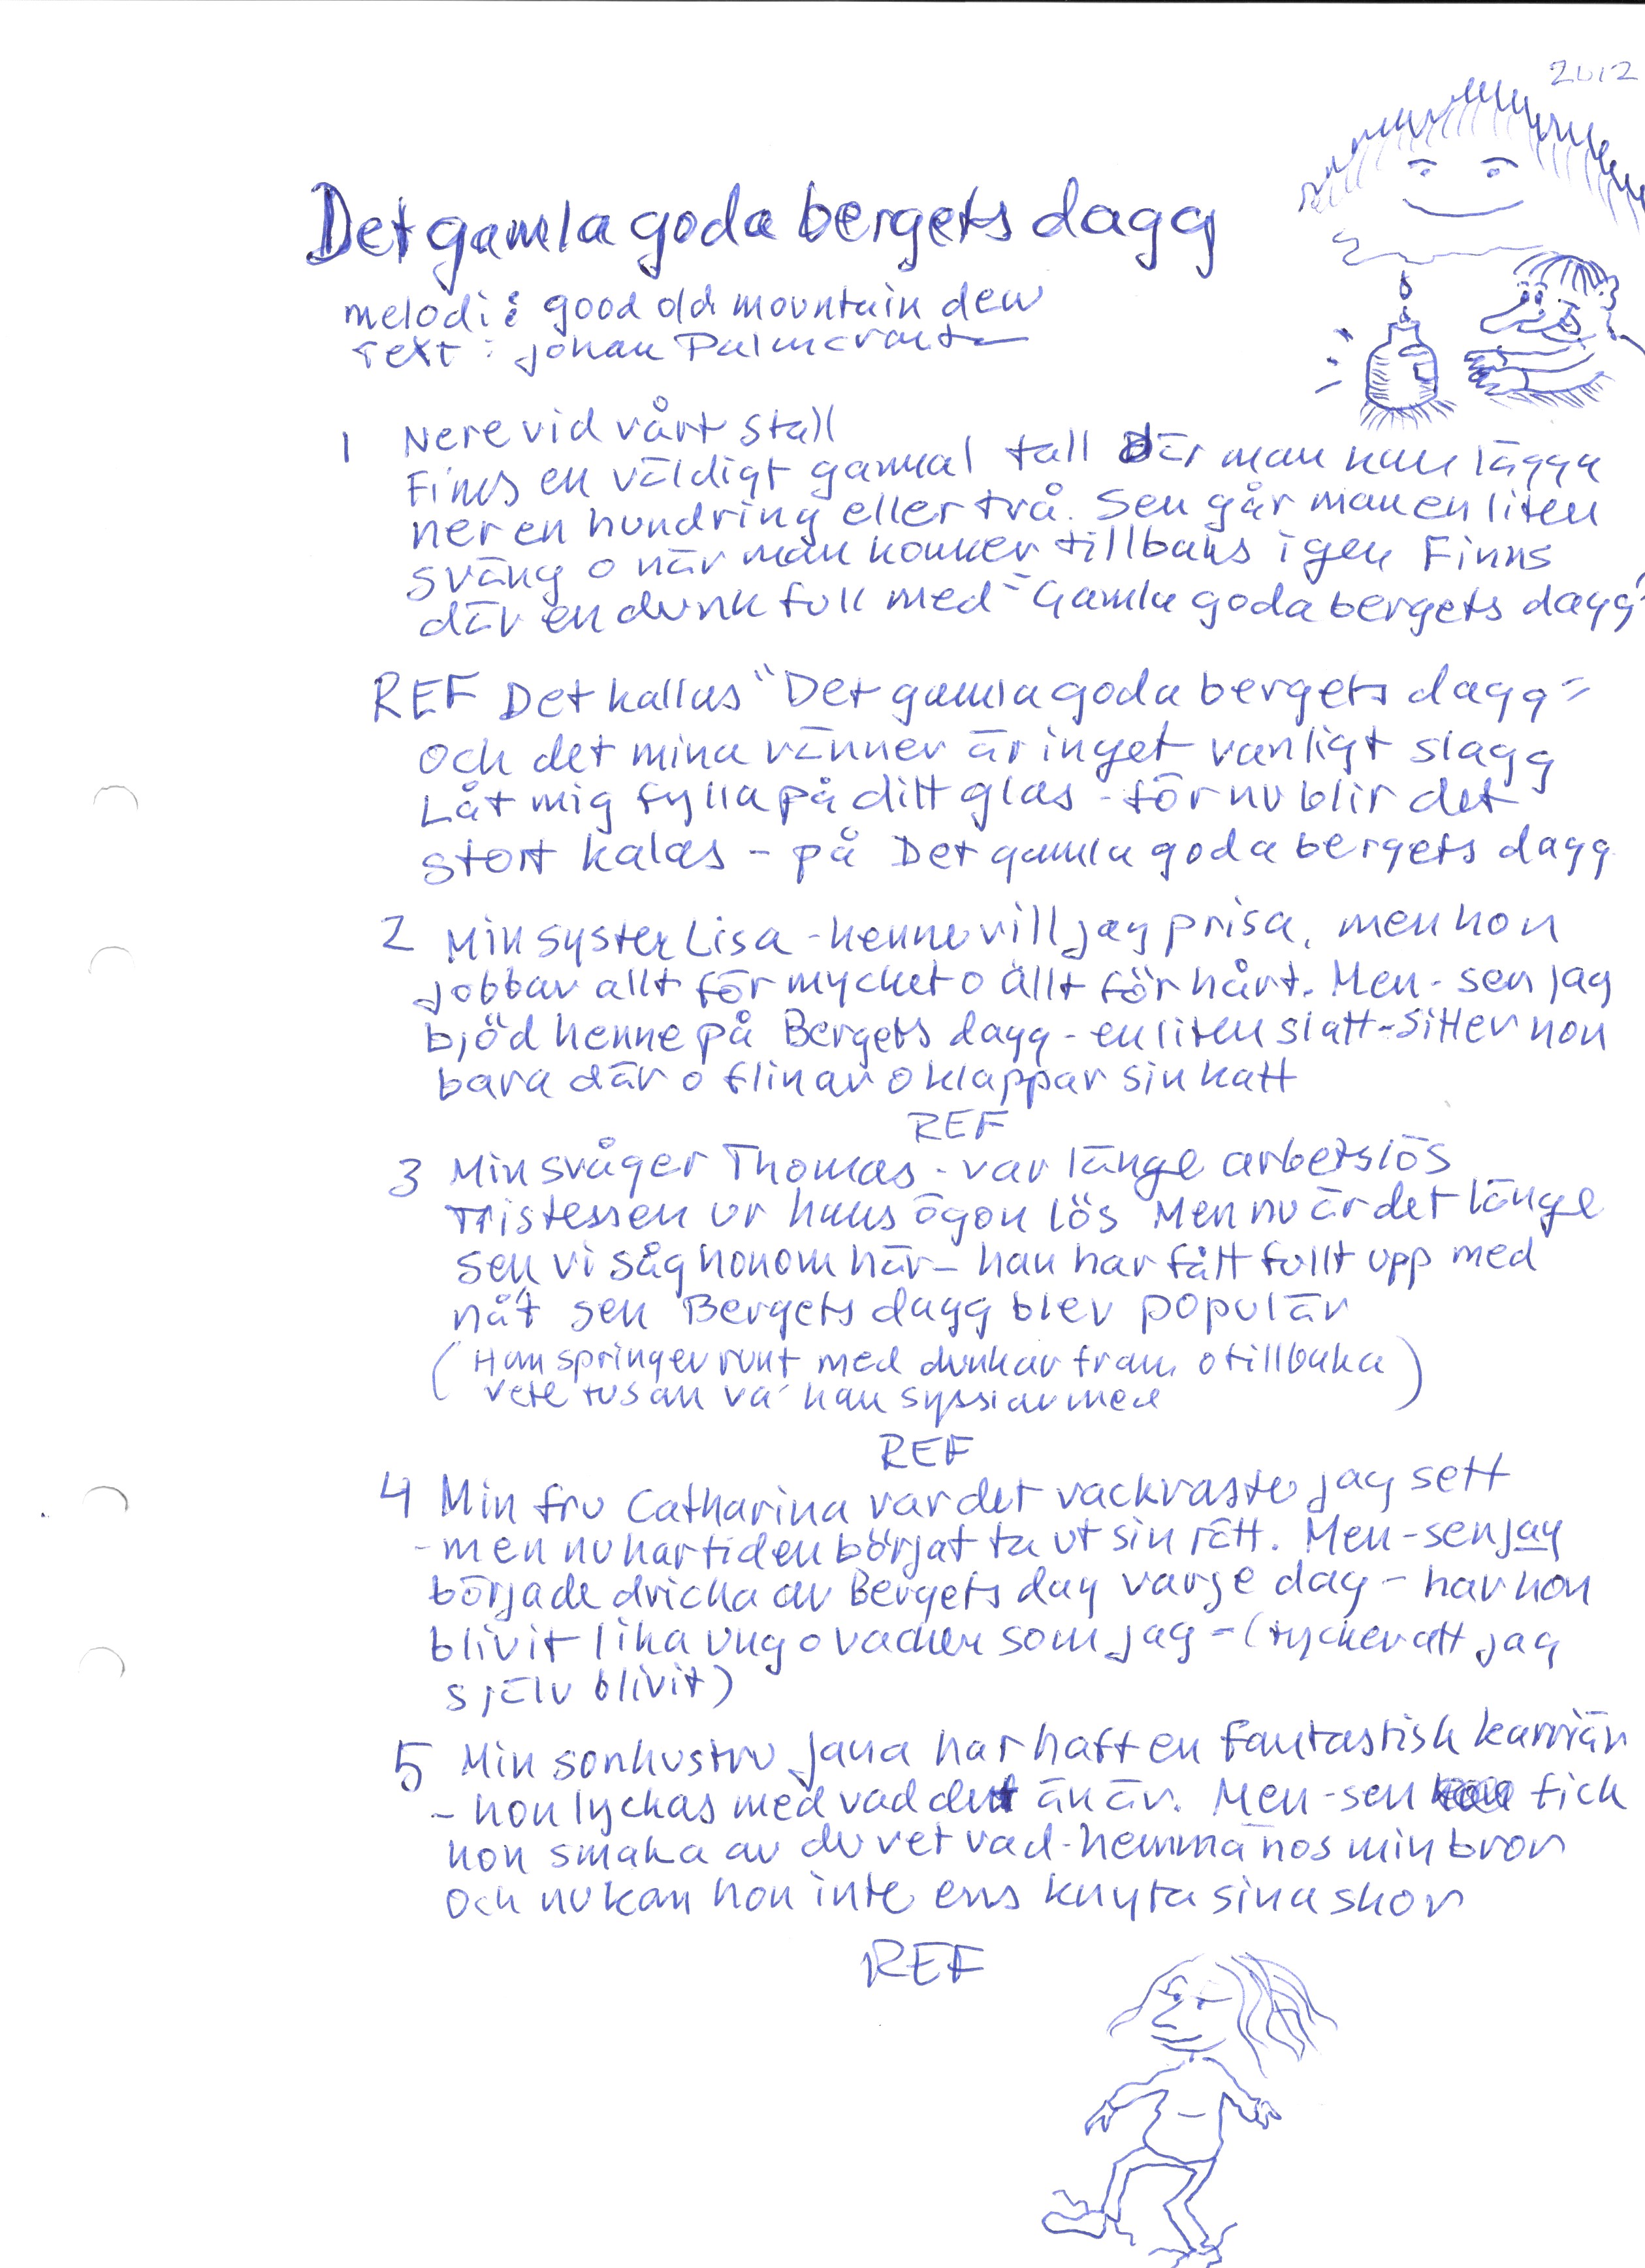 2012
Det gamla goda bergets dagg
melodi: good old mountain dew
Text: Johan Palmcrantz
1 Nere vid vårt stall
Finns en väldigt gammal tall Där man kan lägga
ner en hundring eller två. Sen går man en liten
sväng o när man kommer tillbaks igen Finns
där en dunk full med "Gamla goda bergets dagg"
REF Det kallas "Det gamla goda bergets dagg"
och det mina vänner är inget vanligt slagg
Låt mig fylla på ditt glas - för nu blir det
stort kalas - på Det gamla goda bergets dagg
2 Min syster Lisa - henne vill jag prisa, men hon
jobbar allt för mycket o allt för hårt. Men - sen jag
bjöd henne på Bergets dagg - en liten slatt - sitter hon
bara där o flinar o klappar sin katt
REF
3 Min svåger Thomas - var länge arbetslös
Tristessen ur hans ögon lös Men nu är det länge
sen vi såg honom här - han har fått fullt upp med
nåt sen Bergets dagg blev populär
(Han springer runt med dunkar fram o tillbaka
vete tusan va' han sysslar med)
REF
4 Min fru Catharina var det vackraste jag sett
- men nu har tiden börjat ta ut sin rätt. Men - sen jag
började dricka av Bergets dag varje dag - har hon
blivit lika ung o vacker som jag - (tycker att jag
själv blivit)
5 Min sonhustru Jana har haft en fantastisk karriär
- hon lyckas med vad det än är. Men - sen fick
hon smaka av du vet vad - hemma hos min bror
och nu kan hon inte ens knyta sina skor
REF